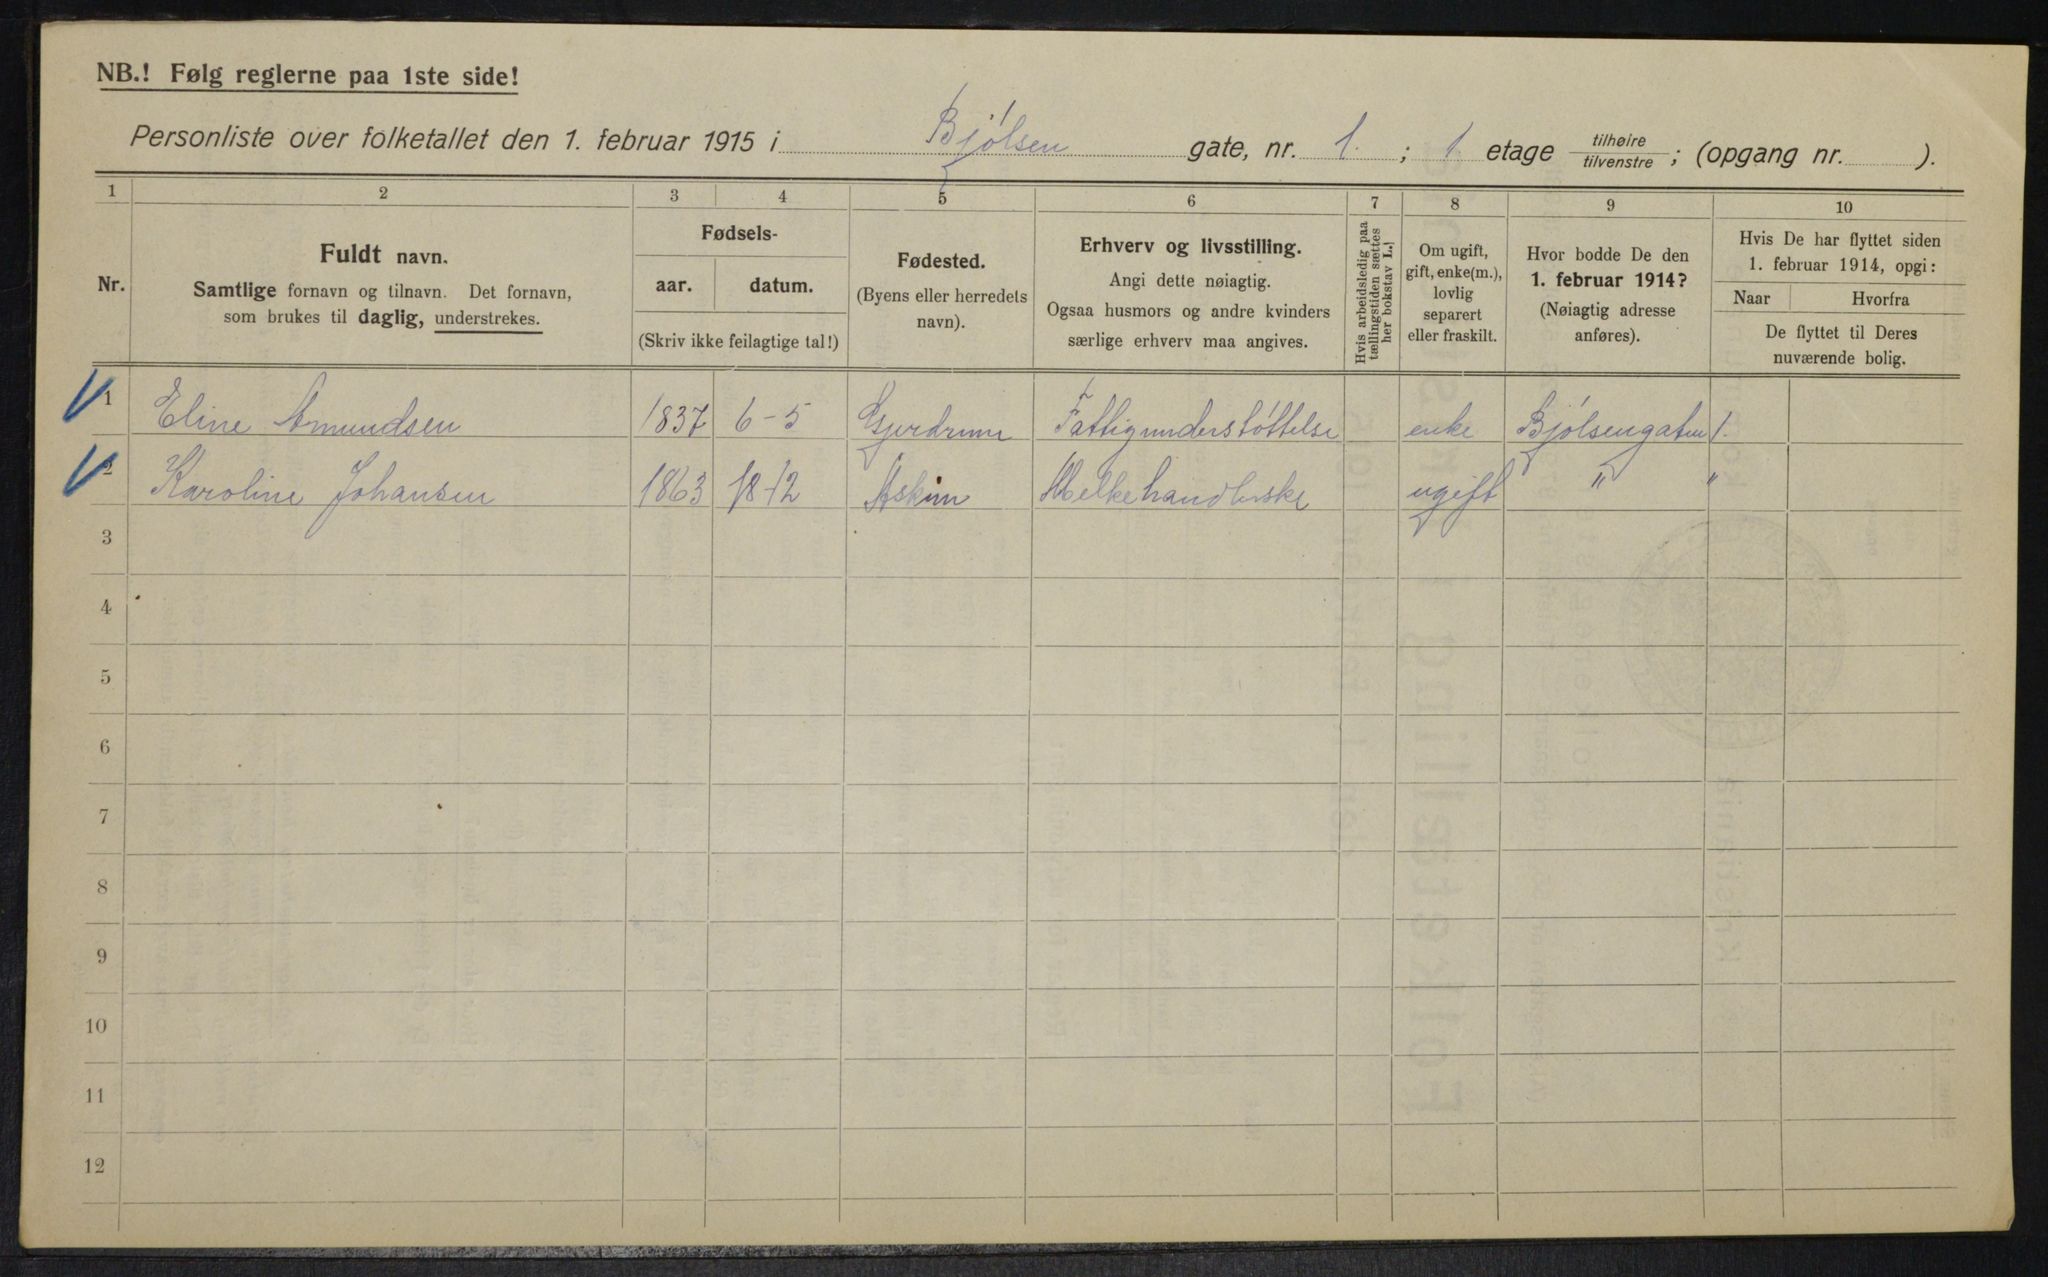 NB.! Følg reglerne paa 1ste side!
Personliste over folketallet den 1. februar 1915 i Bjólsen gate, nr. 1. ; 1. etage tilhøire tilvenstre ; (opgang nr. ).
1 2 3 4 5 6 7 8 9 10
Nr.
Fuldt navn.
Samtlige fornavn og tilnavn. Det fornavn,
som brukes til daglig, understrekes.
Fødsels-
aar. datum.
(Skriv ikke feilagtige tal!)
Fødested.
(Byens eller herredets
navn).
Erhverv og livsstilling.
Angi dette nøiagtig.
Ogsaa husmors og andre kvinders
særlige erhverv maa angives.
Hvis arbeidsledig paa
tællingstiden sættes
her bokstav L.
Om ugift,
gift, enke(m.),
lovlig
separert
eller fraskilt.
Hvor bodde De den
1. februar 1914?
(Nøiagtig adresse
anføres).
Hvis De har flyttet siden
1. februar 1914, opgi:
Naar Hvorfra
De flyttet til Deres
nuværende bolig.
1 Eline Amundsen 1837 6-5 Gjerdrum Fattigunderstóttelse enke Bjólsengaten 1.
2 Karoline Johansen 1863 18-12 Askim Melkehandlerske ugift " "
3
4
5
6
7
8
9
10
11
12